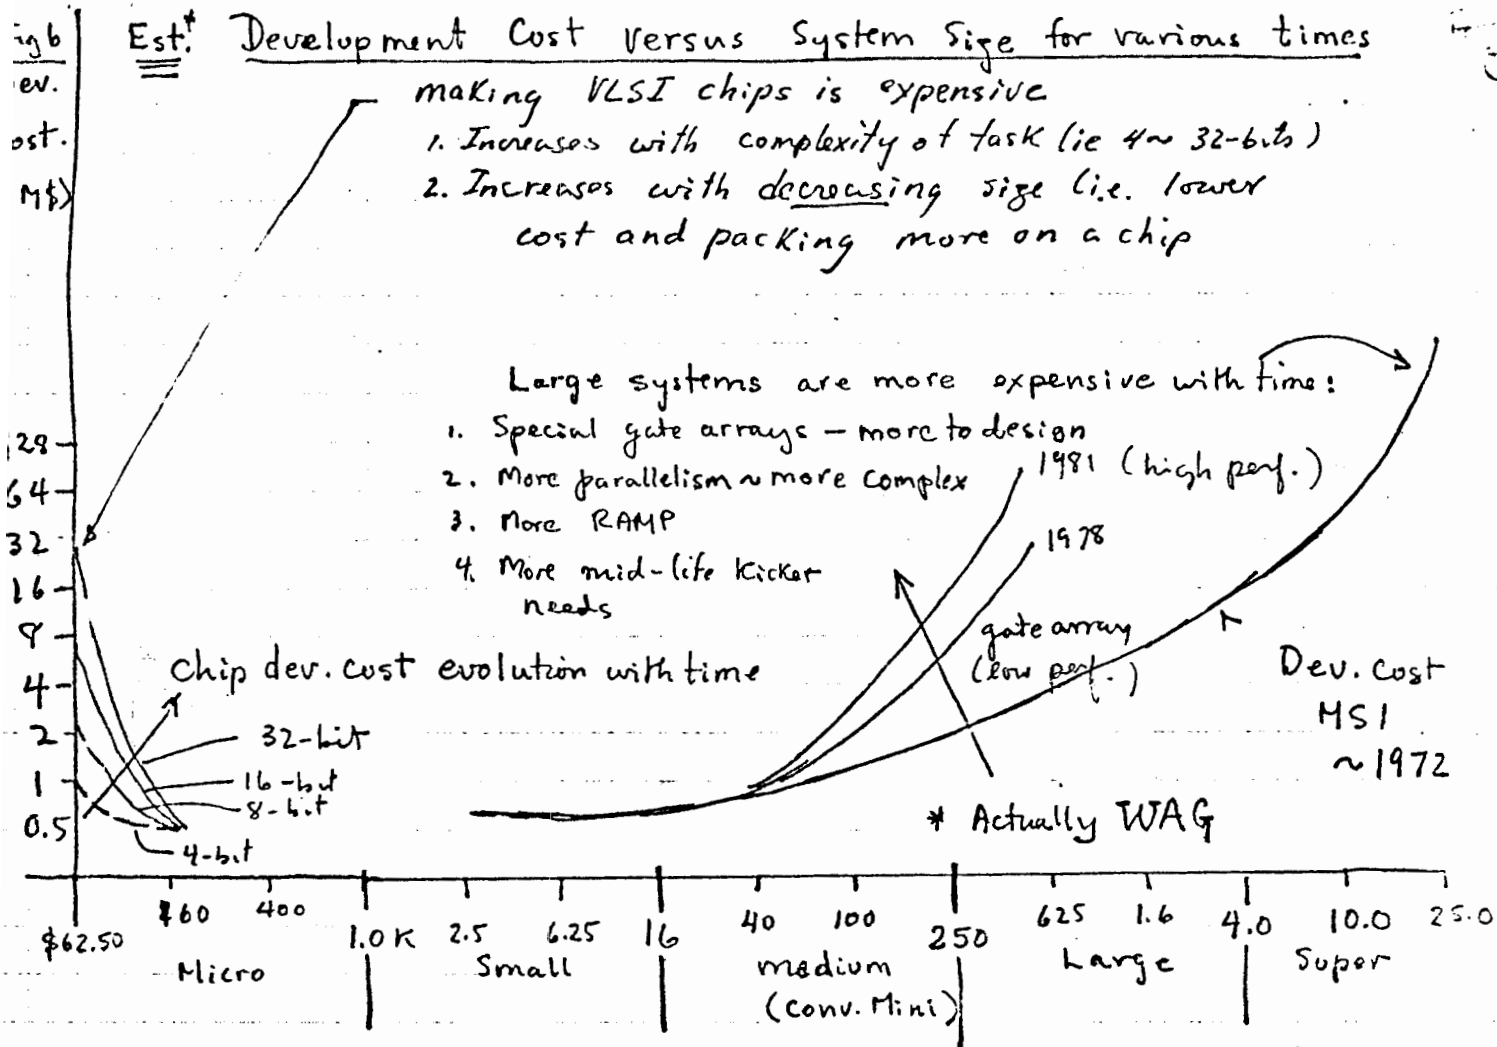 Est.* Development Cost versus System Size for various times
ig 6
ev.
ost.
M$)
making VLSI chips is expensive
1. Increases with complexity of task (ie 4~ 32-bits)
2. Increases with decreasing size (i.e. lower
cost and packing more on a chip
Large systems are more expensive with time:
1. Special gate arrays – more to design
2. More parallelism ~ more complex
3. More RAMP
4. More mid-life Kicker
needs
1981 (high perf.)
1978
gate array
(low perf.)
Dev. Cost
MSI
~1972
* Actually WAG
Chip dev. cost evolution with time
32-bit
16-bit
8-bit
4-bit
128
64
32
16
8
4
2
1
0.5
$62.50 160 400 1.0K 2.5 6.25 16 40 100 250 625 1.6 4.0 10.0 25.0
Micro Small medium Large Super
(Conv. Mini)